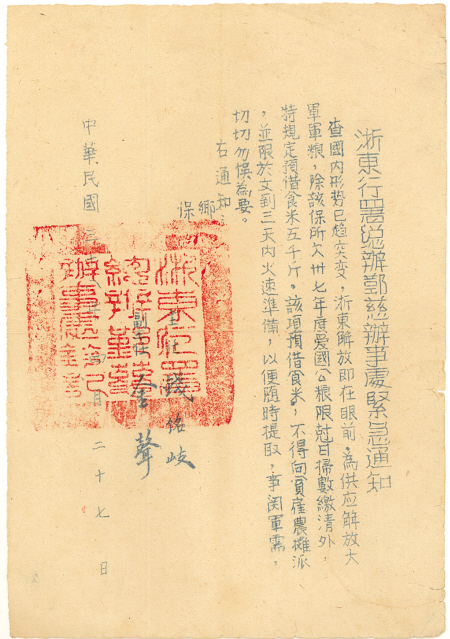 浙東行署總辦鄞慈辦事處緊急通知
查國内形势已趋突变，浙東解放即在眼前，為供应解放大
軍軍粮，除該保所欠卅七年度愛國公粮限尅日掃數繳清外，
特規定預借食米五千斤。該項預借食米，不得向貧雇農攤派
，並限於文到三天內火速準備，以便隨時提取，事関軍需，
切切勿悞為要。
右通知
鄉
保
主任 錢銘岐
副主任 奎聲
中華民國
月二十七日